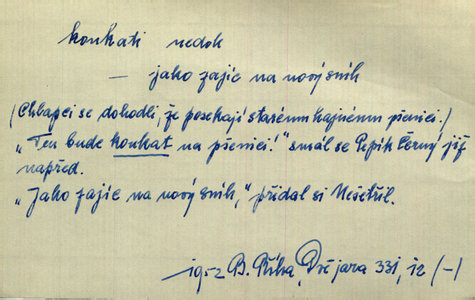 koukati nedok
— jako zajíc na nový sníh
(Chlapci se dohodli, že posekají starému hajnému pšenici.)
„Ten bude koukat na pšenici!“ smál se Pepík Černý již
napřed.
„Jako zajíc na nový sníh,“ přidal si Nešetřil.
1952 B. Říha, Dvě jara 331, 12 (—)